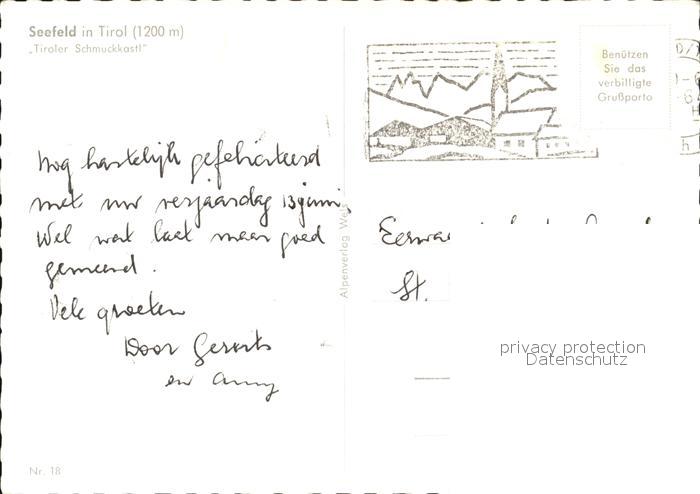 Seefeld in Tirol (1200 m)
„Tiroler Schmuckkastl"
Benützen
Sie das
verbilligte
Grußporto
Nog hartelijk gefeliciteerd
met uw verjaardag 13 juni,
Wel wat laat maar goed
gemeend.
Vele groeten
Door Gerrits
en Anny
Alpenverlag
St.
privacy protection
Datenschutz
Nr. 18